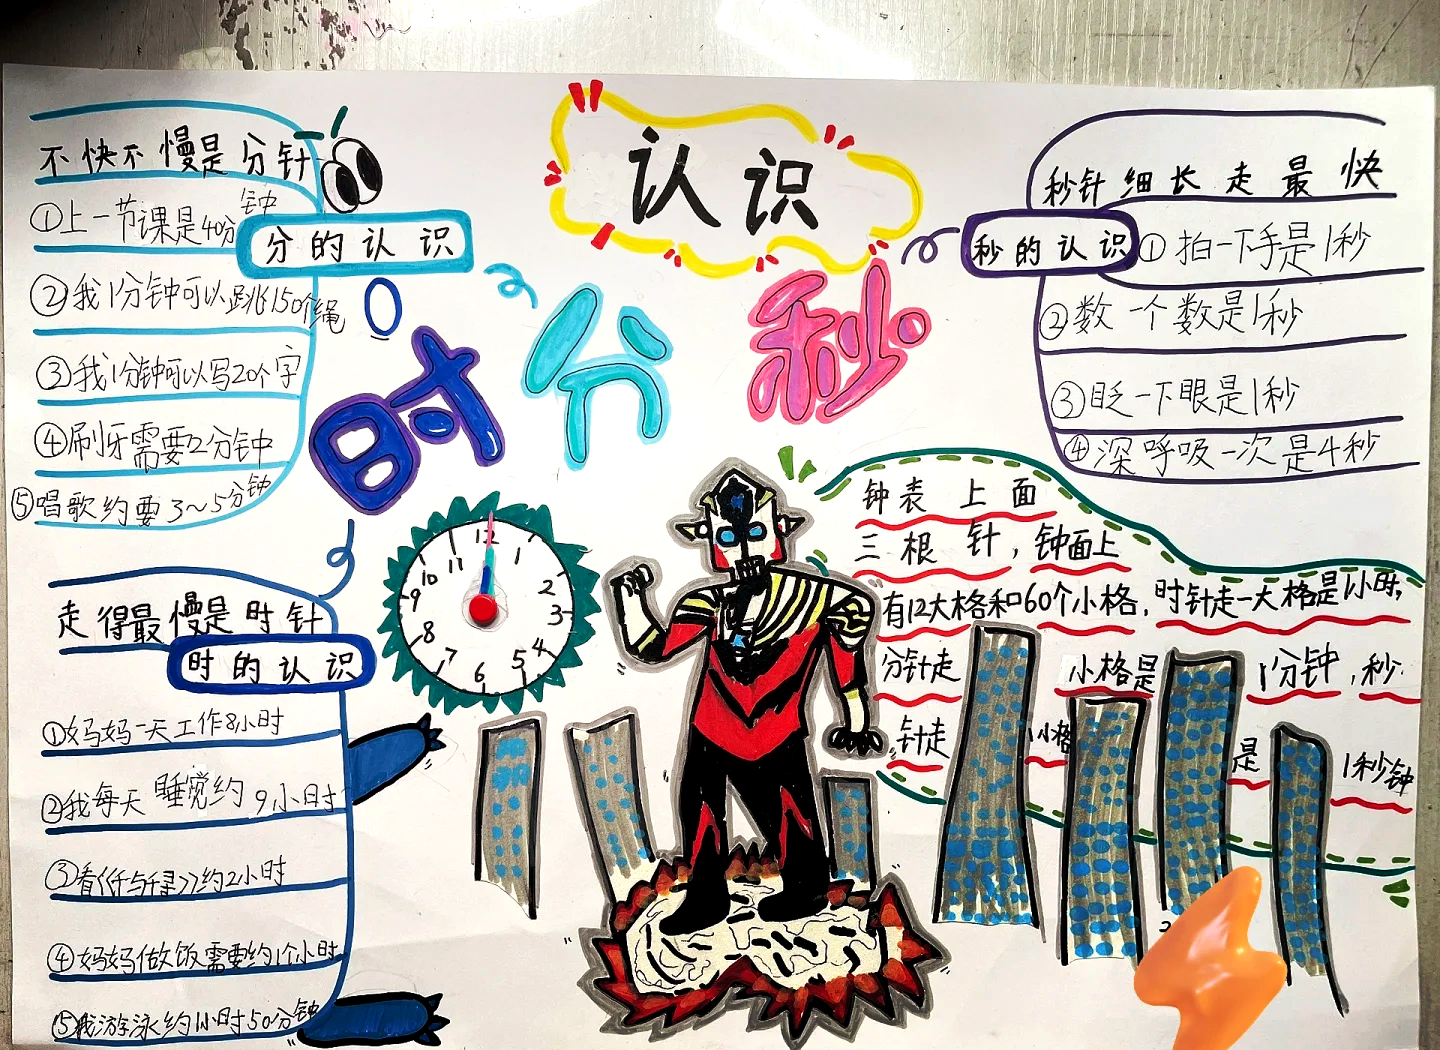 认识
时分秒
不快不慢是分针
分的认识
①上一节课是40分钟
②我1分钟可以跳150个绳
③我1分钟可以写20个字
④刷牙需要2分钟
⑤唱歌约要3~5分钟
走得最慢是时针
时的认识
①妈妈一天工作8小时
②我每天睡觉约9小时
③看《千与千寻》约2小时
④妈妈做饭需要约1个小时
⑤我游泳约1小时50分钟
秒针细长走最快
秒的认识
①拍一下手是1秒
②数一个数是1秒
③眨一下眼是1秒
④深呼吸一次是4秒
钟表上面
三根针，钟面上
有12大格和60个小格，时针走一大格是1小时，
分针走 小格是 1分钟，秒
针走 1小格 是 1秒钟
12
1
2
3
4
5
6
7
8
9
10
11